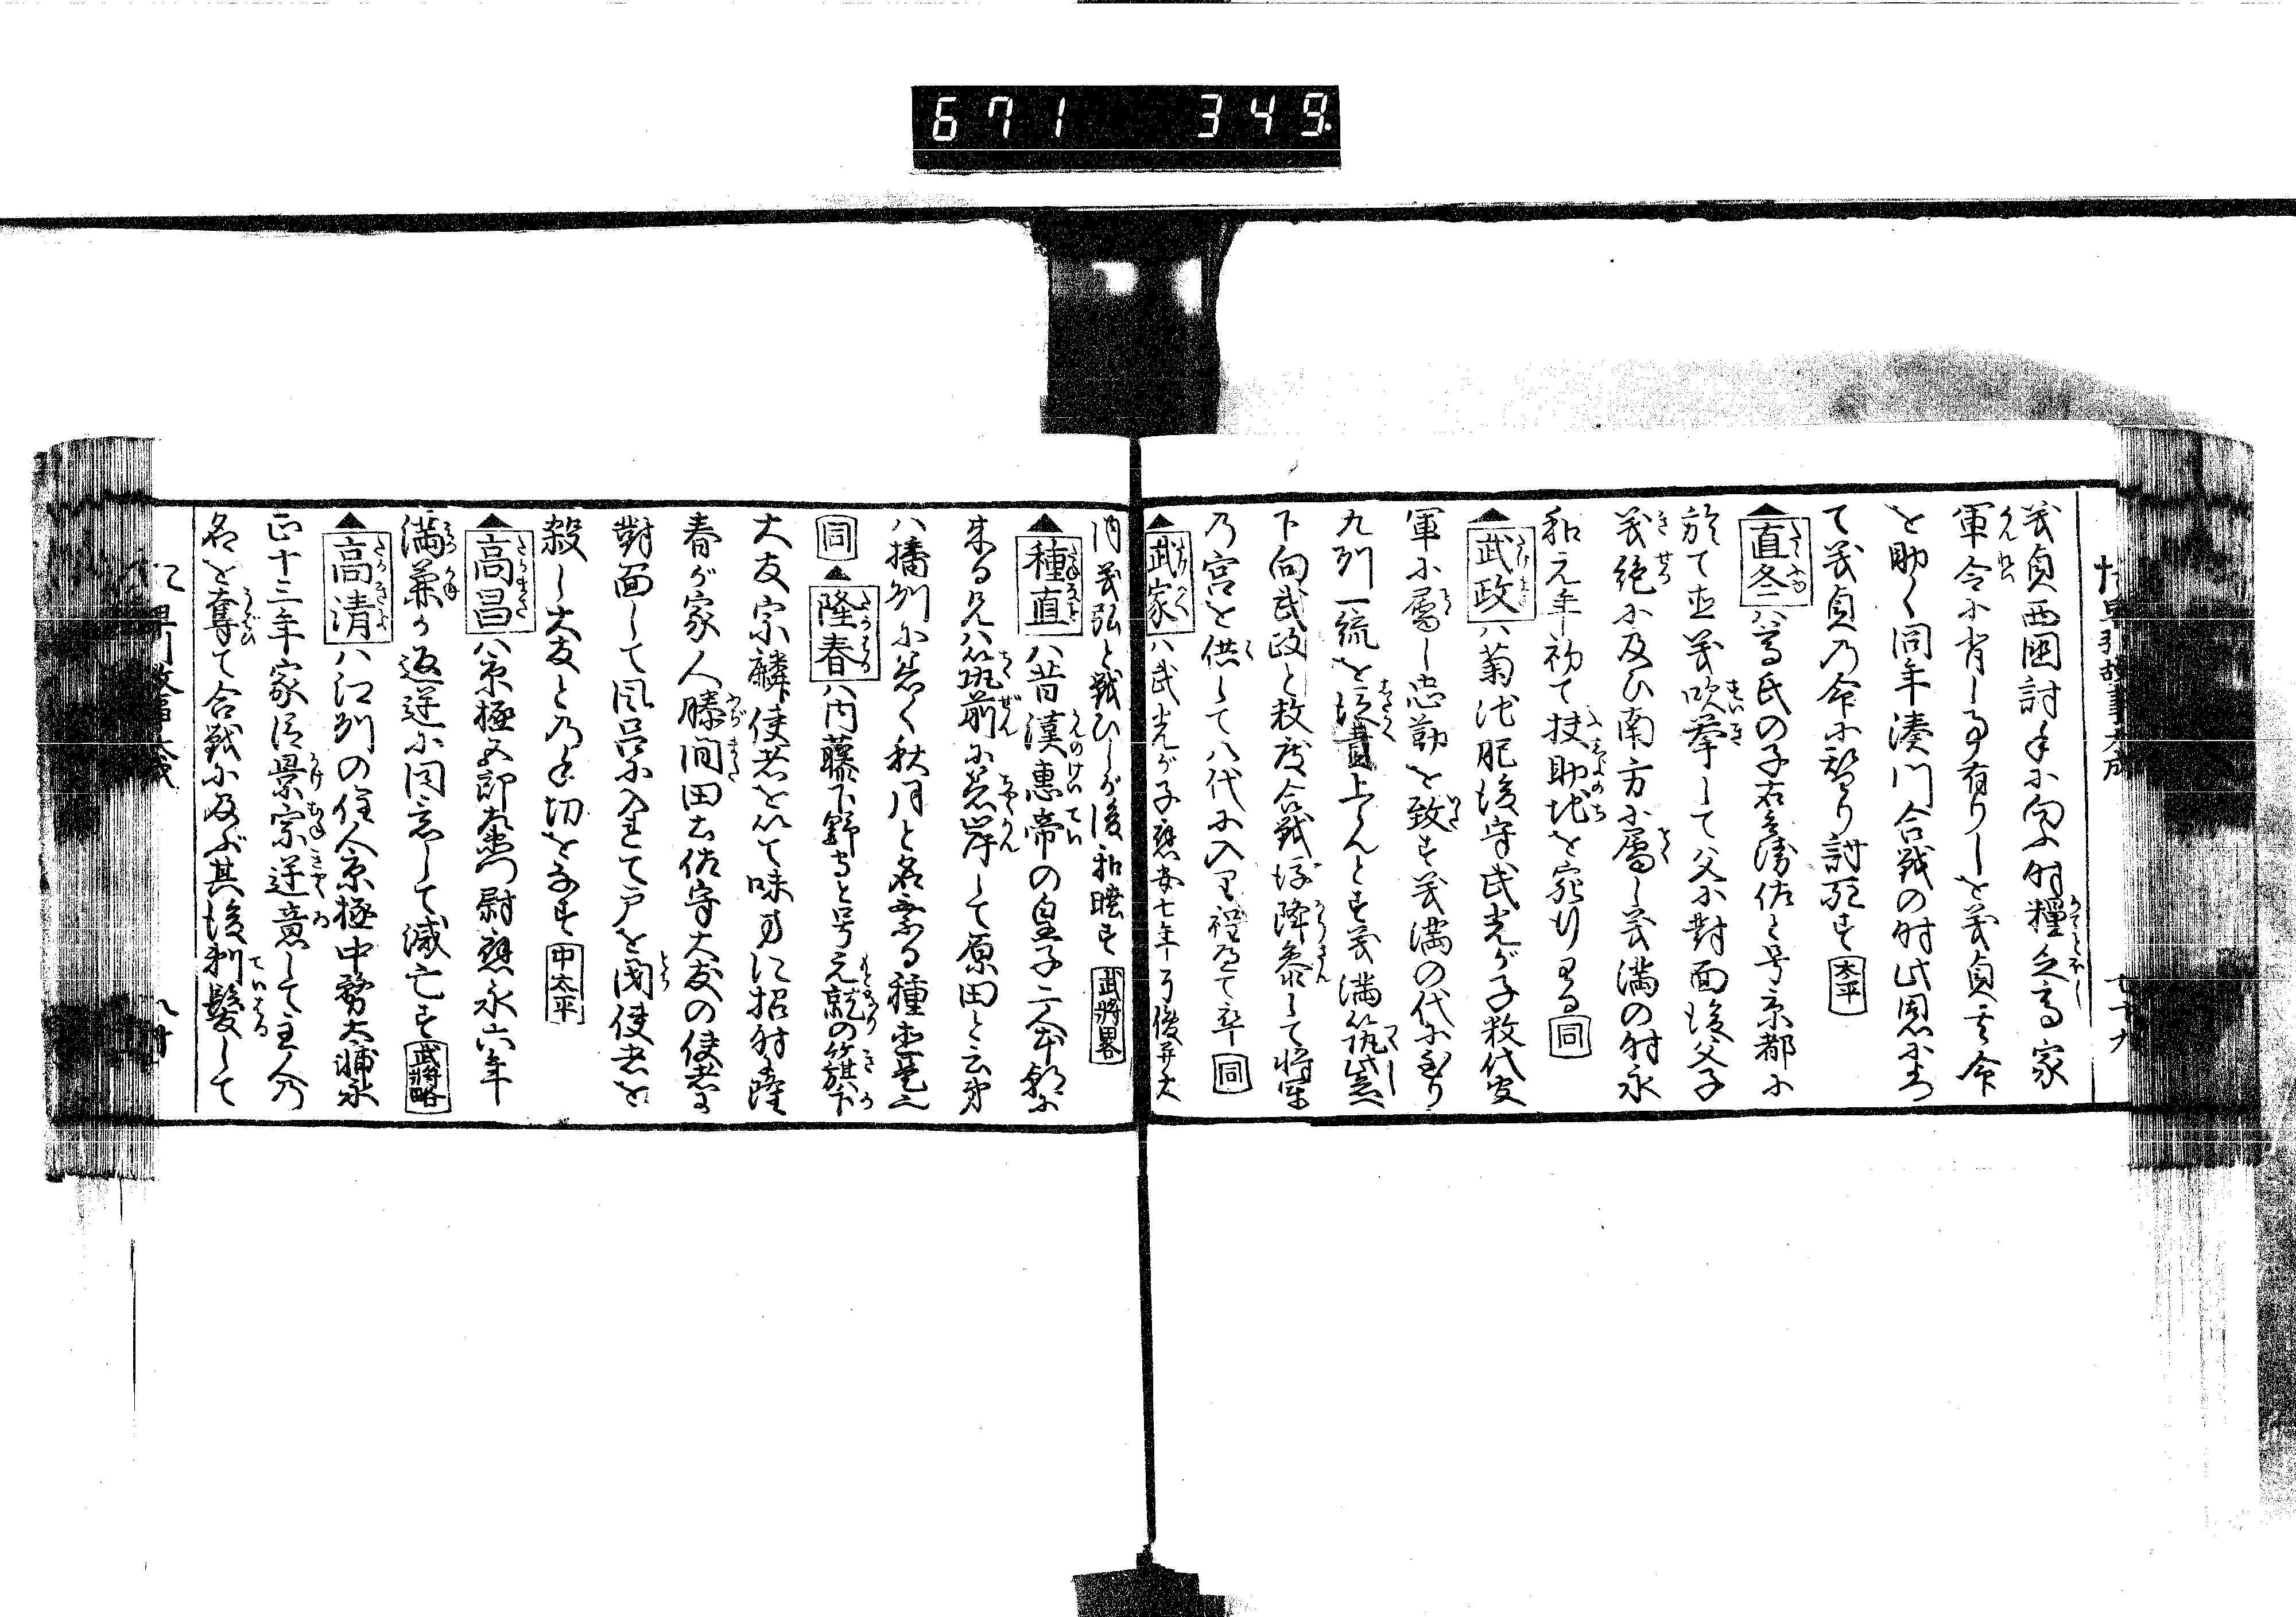 671 349
早引故事大成 七十九
義貞西國討手に向ふ时糧乏高家
軍令に背し事有りしを義貞其命
を助く同年湊川合戦の时此恩に
て義貞の命に替り討死す 太平
▲直冬ハ尊氏の子右兵衛佐と号京都に
於て直義吹挙して父に對面後父子
義絶に及ひ南方に属し義満の时永
和元年初て扶助地を宛行るる 同
▲武政ハ菊池肥後守武光が子数代宮
軍に属し忠勤を致す義満の代に至り
九列一統を攻上らんとす義満筑紫へ
下向武政と数度合戦降参して将軍
乃宮を供して八代に入て卒 同
▲武家ハ武光が子應安七年了俊并大
内義弘と戦ひしが後和睦す 武將畧
▲種直ハ昔漢惠帝の皇子二人本朝に
来る兄ハ筑前に着岸して原田と云弟
ハ播列に着く秋月と名乗る種直是
同 ▲隆春ハ内藤下野守と号元就の籏下
大友宗麟使者を以て味方に招时隆
春が家人勝間田土佐守大友の使者に
對面して風呂に入至て戸を閉使者を
殺し大友との手切をなす 中太平
▲高昌ハ京極五郎左衛門尉應永六年
満兼が返逆に同意して滅亡す 武將略
▲高清ハ江列の住人京極中務大輔永
正十三年家臣景宗逆意して主人乃
名を奪て合戦に及ぶ其後剃髪して
早引故事大成 八十